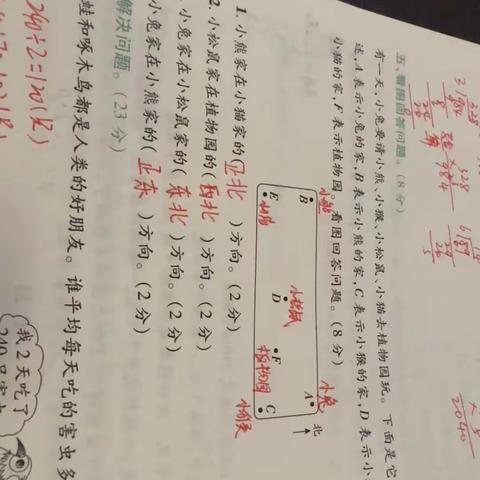 五、看图回答问题。(8分)
有一天,小兔要请小熊、小猴、小松鼠、小猫去植物园玩。下面是它
述,A表示小兔的家,B表示小熊的家,C表示小猴的家,D表示小
小猫的家,F表示植物园。看图回答问题。(8分)
小熊
小兔
北
B
A
小松鼠
D
E
F
C
植物园
小猴
1. 小熊家在小猫家的(正北)方向。(2分)
2. 小松鼠家在植物园的(西北)方向。(2分)
小兔家在小松鼠家的(东北)方向。(2分)
小兔家在小熊家的(正东)方向。(2分)
解决问题。(23分)
蛙和啄木鸟都是人类的好朋友。谁平均每天吃的害虫多
我2天吃了
240÷2=120(只)